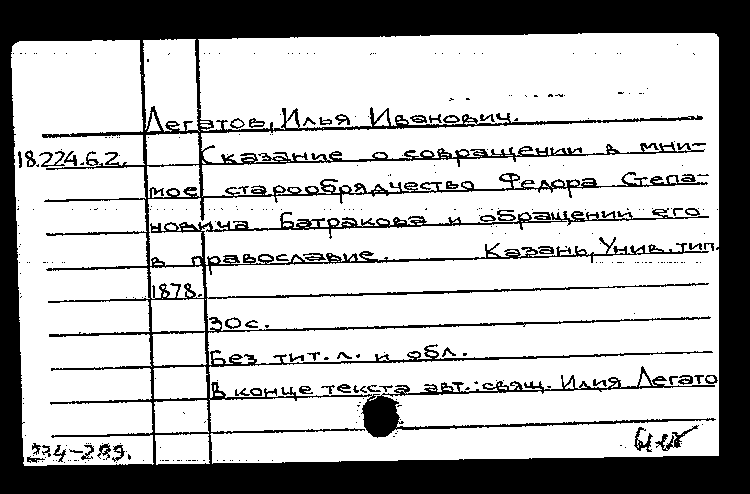 Легатов, Илья Иванович.
18.224.6.2. Сказание о совращении в мни-
мое старообрядчество Федора Степа-
новича Батракова и обращении его
в православие. Казань, Унив. тип.
1878.
30с.
Без тит. л. и обл.
В конце текста авт.: свящ. Илия Легато
234-289.